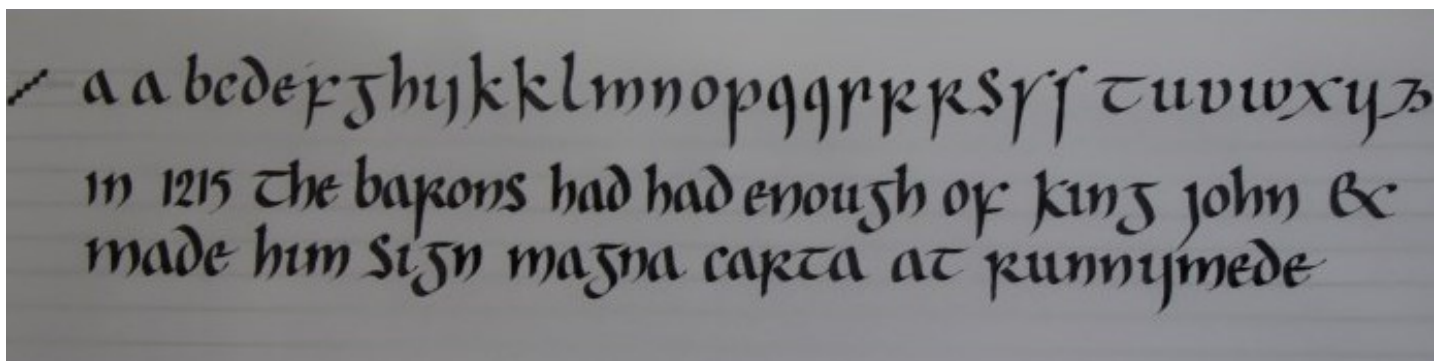 a a b c d e f g h i j k k l m n o p q q r r r s r ſ t u v w x y z
in 1215 the barons had had enough of king john &
made him sign magna carta at runnymede